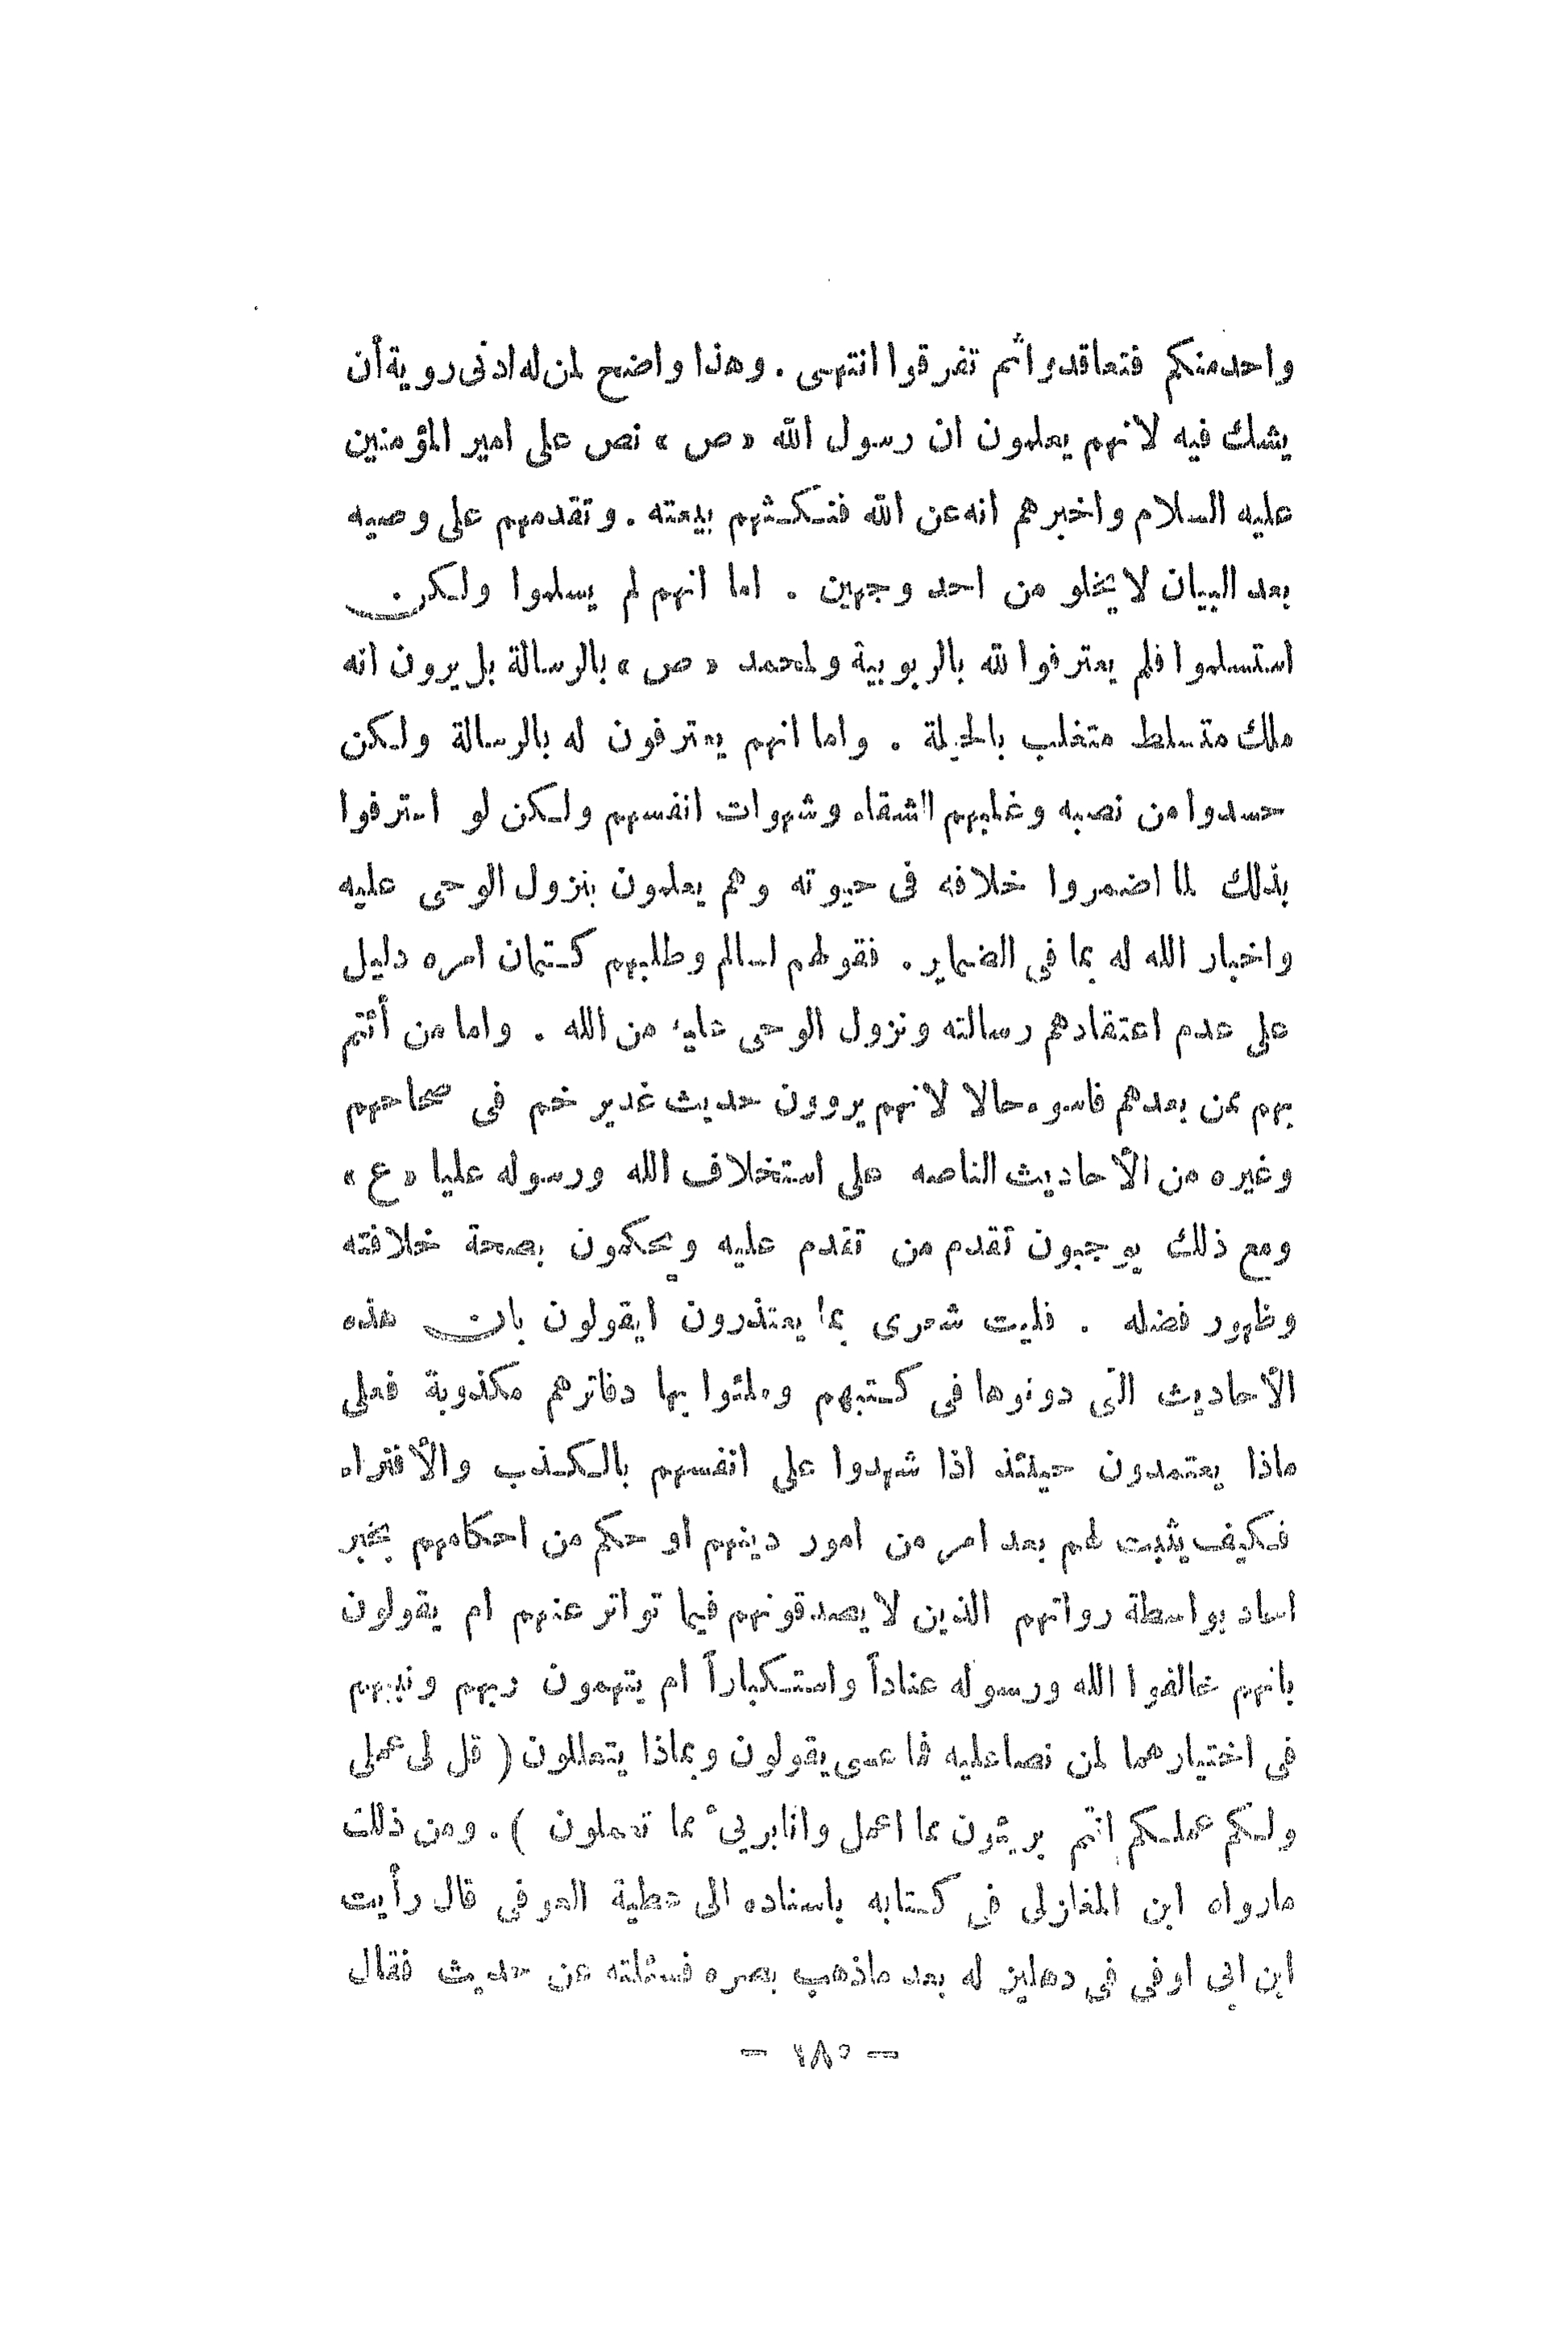 واحد منكم فتعاقدوا ثم تفرقوا انتهى . وهذا واضح لمن له ادنى روية أن
يشك فيه لانهم يعلمون ان رسول الله « ص » نص على امير المؤمنين
عليه السلام واخبرهم انه عن الله فنكثهم بيعته . وتقدمهم على وصيه
بعد البيان لا يخلو من احد وجهين . اما انهم لم يسلموا ولكن
استسلموا فلم يعترفوا لله بالربوبية ولمحمد « ص » بالرسالة بل يرون انه
ملك متسلط متغلب بالحيلة . واما انهم يعترفون له بالرسالة ولكن
حسدوا من نصبه وغلبهم الشقاء وشهوات انفسهم ولكن لو اعترفوا
بذلك لما اضمروا خلافه فى حيوته وهم يعلمون بنزول الوحى عليه
واخبار الله له بما فى الضماير . فقولهم لسالم وطلبهم كتمان امره دليل
على عدم اعتقادهم رسالته ونزول الوحى عليه من الله . واما من أئتم
بهم ممن بعدهم فاسوء حالا لانهم يروون حديث غدير خم فى صحاحهم
وغيره من الأحاديث الناصه على استخلاف الله ورسوله عليا « ع »
ومع ذلك يوجبون تقدم من تقدم عليه ويحكمون بصحة خلافته
وظهور فضله . فليت شعرى بما يعتذرون ايقولون بان هذه
الأحاديث التى دونوها فى كتبهم وملئوا بها دفاترهم مكذوبة فعلى
ماذا يعتمدون حينئذ اذا شهدوا على انفسهم بالكذب والأفتراء
فكيف يثبت لهم بعد امر من امور دينهم او حكم من احكامهم بخبر
احاد بواسطة رواتهم الذين لا يصدقونهم فيما تواتر عنهم ام يقولون
بانهم خالفوا الله ورسوله عناداً واستكباراً ام يتهمون ربهم ونبيهم
فى اختيارهما لمن نصا عليه فما عسى يقولون وبماذا يتعللون ( قل لى عملى
ولكم عملكم انتم بريئون مما اعمل وانا بريىء مما تعملون ) . ومن ذلك
مارواه ابن المغازلى فى كتابه باسناده الى عطية العوفى قال رأيت
ابن ابى اوفى فى دهليز له بعد ماذهب بصره فسئلته عن حديث فقال